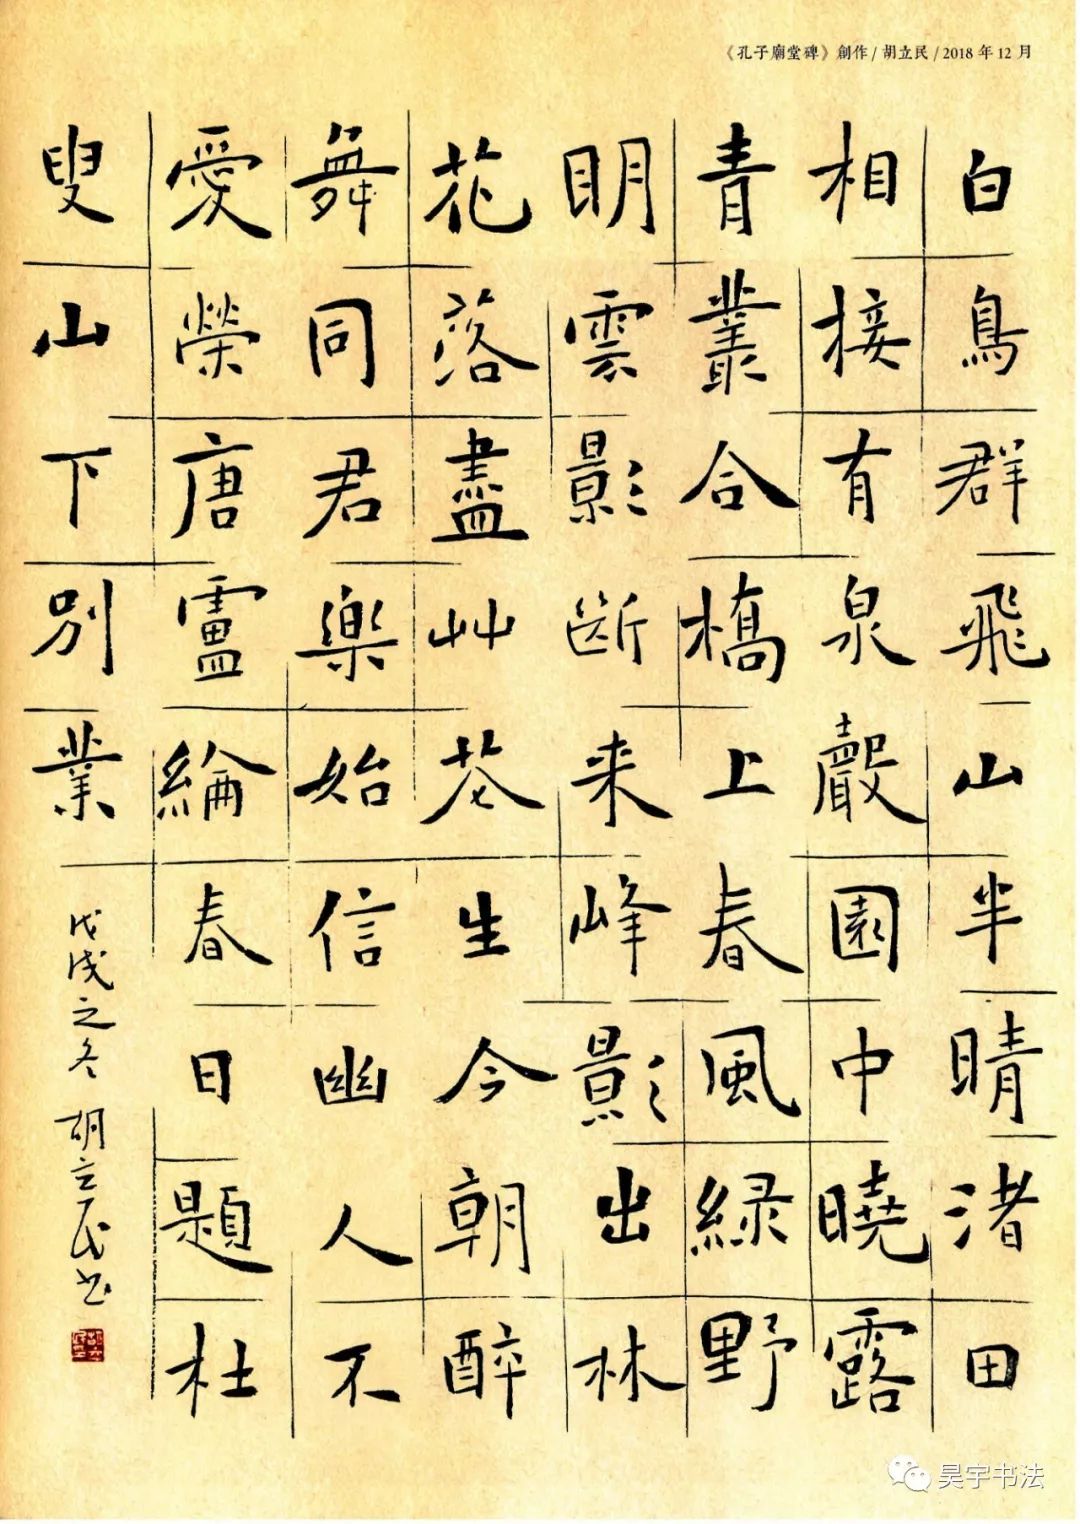 《孔子廟堂碑》創作/胡立民/2018年12月
白鳥群飛山半晴渚田
相接有泉聲園中曉露
青叢合橋上春風緑野
明雲影斷来峰影出林
花落盡艸花生今朝醉
舞同君樂始信幽人不
愛榮唐盧綸春日題杜
叟山下別業
戊戌之冬 胡立民书
昊宇书法